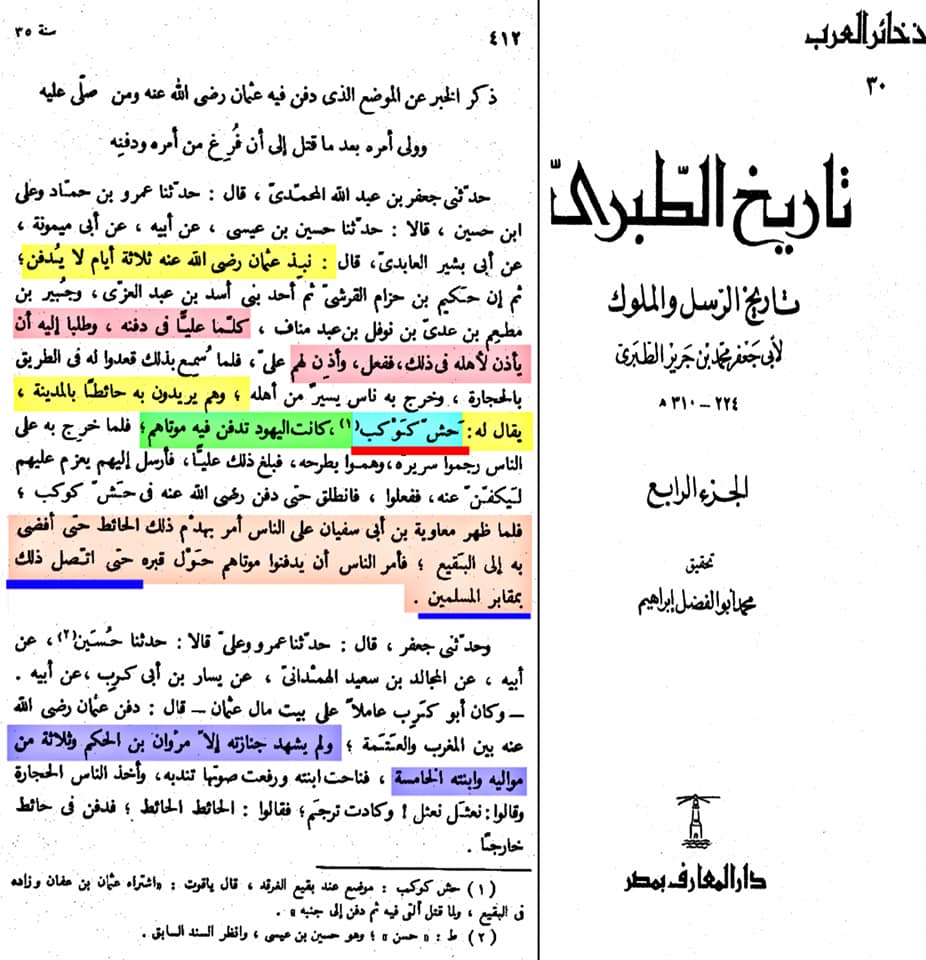 سنة ٣٥
٤١٢
ذكر الخبر عن الموضع الذى دفن فيه عثمان رضى الله عنه ومن صلّى عليه
وولى أمره بعد ما قتل إلى أن فُرِغ من أمره ودفنِه
حدّثنى جعفر بن عبد الله المحمّدىّ ، قال : حدّثنا عمرو بن حمّاد وعلى
ابن حسين ، قالا : حدّثنا حسين بن عيسى ، عن أبيه ، عن أبى ميمونة ،
عن أبى بشير العابدىّ، قال : نبذ عثمان رضى الله عنه ثلاثة أيام لا يُدفن؛
ثم إن حكيم بن حزام القرشىّ ثم أحد بنى أسد بن عبد العزّى ، وجُبير بن
مطعِم بن عدىّ بن نوفل بن عبد مناف ، كلّما عليًّا فى دفنه ، وطلبا إليه أن
يأذن لأهله فى ذلك، ففعل، وأذِن لهم علىّ، فلما سُمِع بذلك قعدوا له فى الطريق
بالحجارة ، وخرج به ناس يسيرٌ من أهله ؛ وهم يريدون به حائطًا بالمدينة ،
يقال له: حَشّ كَوْكب(١)، كانت اليهود تدفن فيه موتاهم؛ فلما خرِج به على
الناس رجموا سريره، وهمّوا بطرحه، فبلغ ذلك عليًّا، فأرسل إليهم يعزم عليهم
لَيكفّنّ عنه، ففعلوا ، فانطلق حتى دفن رضى الله عنه فى حَشّ كوكب ؛
فلما ظهر معاوية بن أبى سفيان على الناس أمر بهدْم ذلك الحائط حتى أفضى
به إلى البَقيع ؛ فأمر الناس أن يدفنوا موتاهم حَوْل قبره حتى اتّصل ذلك
بمقابر المسلمين .
وحدّثنى جعفر ، قال : حدّثنا عمرو وعلىّ قالا : حدثنا حُسَين(٢)، عن
أبيه ، عن المجالد بن سعيد الهمْدانىّ ، عن يسار بن أبى كرِب ، عن أبيه .
ــ وكان أبو كَرِب عاملاً على بيت مال عثمان ــ قال : دفن عثمان رضى الله
عنه بين المغرب والعَتَمة ؛ ولم يشهد جنازته إلاّ مرْوان بن الحكم وثلاثة من
مواليه وابنته الخامسة ، فناحت ابنته ورفعت صوتها تندبه، وأخذ الناس الحجارة
وقالوا: نعثَل نعثل ! وكادت ترجَم؛ فقالوا : الحائط الحائط ؛ فدفن فى حائط
خارجًا .
(١) حش كوكب : موضع عند بقيع الغرقد ، قال ياقوت : «اشتراه عثمان بن عفان وزاده
فى البقيع ، ولما قتل ألقى فيه ثم دفن إلى جنبه » .
(٢) ط : « حسن » ؛ وهو حسين بن عيسى ، وانظر السند السابق .
ذخائر العرب
٣٠
تاريخ الطّبرىّ
تاريخ الرسل والملوك
لأبى جعفر محمد بن جرير الطبرى
٢٢٤ - ٣١٠ ه
الجزء الرابع
تحقيق
محمد أبو الفضل إبراهيم
دار المعارف بمصر